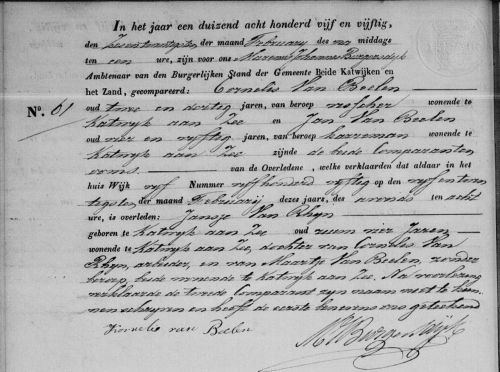 In het jaar een duizend acht honderd vijf en vijftig,
den zes en twintigsten, der maand February des na middags
ten een ure, zijn voor ons
Ambtenaar van den Burgerlijken Stand der Gemeente Beide Katwijken en
het Zand, gecompareerd: Cornelis Van Beelen
No. 61 oud twee en dertig jaren, van beroep visscher wonende te
Katwyk aan Zee en Jan Van Beelen
oud vier en vyftig jaren, van beroep karreman wonende te
Katwyk aan Zee zijnde de beide Comparanten
ooms van de Overledene, welke verklaarden dat aldaar in het
huis Wijk vyf Nummer vyfhonderd vyftig op den vyf en twin
tigsten der maand February dezes jaars, des avonds ten acht
ure, is overleden: Jansje Van Rhyn
geboren te Katwyk aan Zee oud ruim vier Jaren
wonende te Katwyk aan Zee, dochter van Cornelis Van
Rhyn, arbeider, en van Maartje Van Beelen, zonder
beroep, beide wonende te Katwyk aan Zee. Na voorlezing
verklaarde de tweede Comparant zyn naam niet te kun
nen schryven en heeft de eerste benevens ons geteekend
Kornelis van Beelen